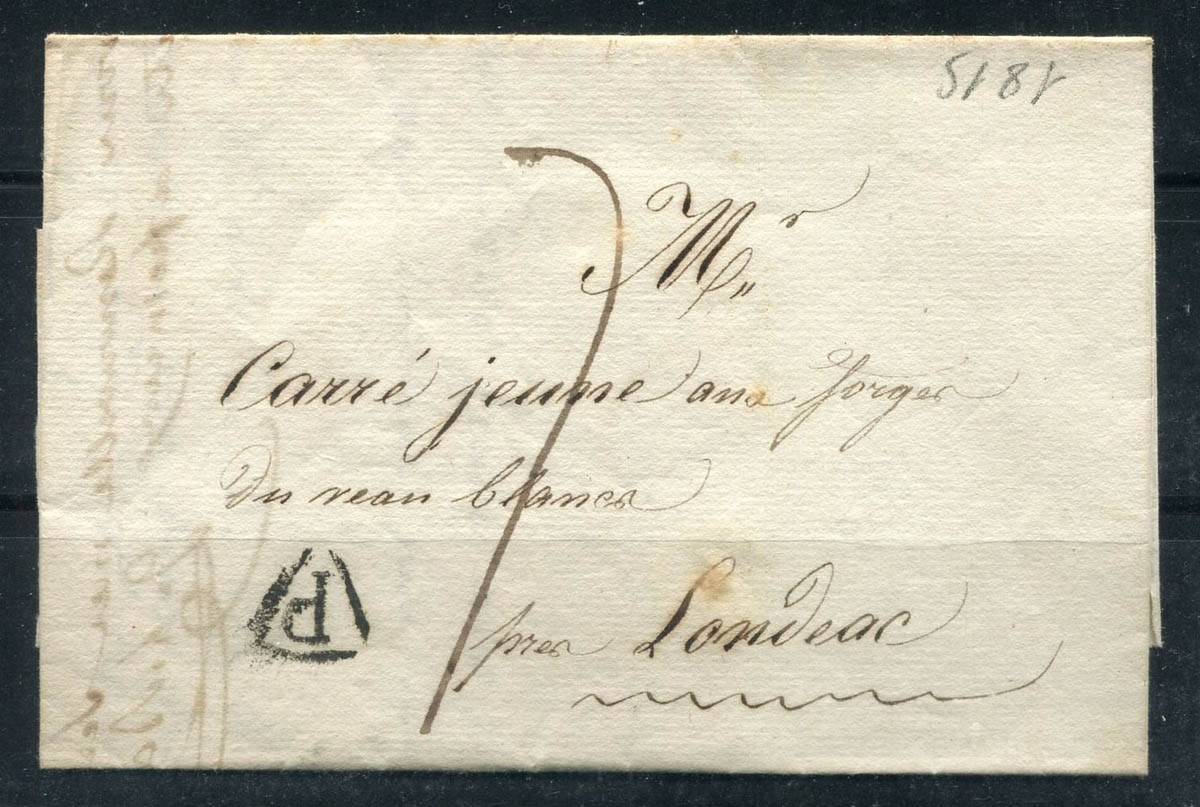 1815
7
Mr
Carré jeune aux forges
du veau blancs
P
près Londeac